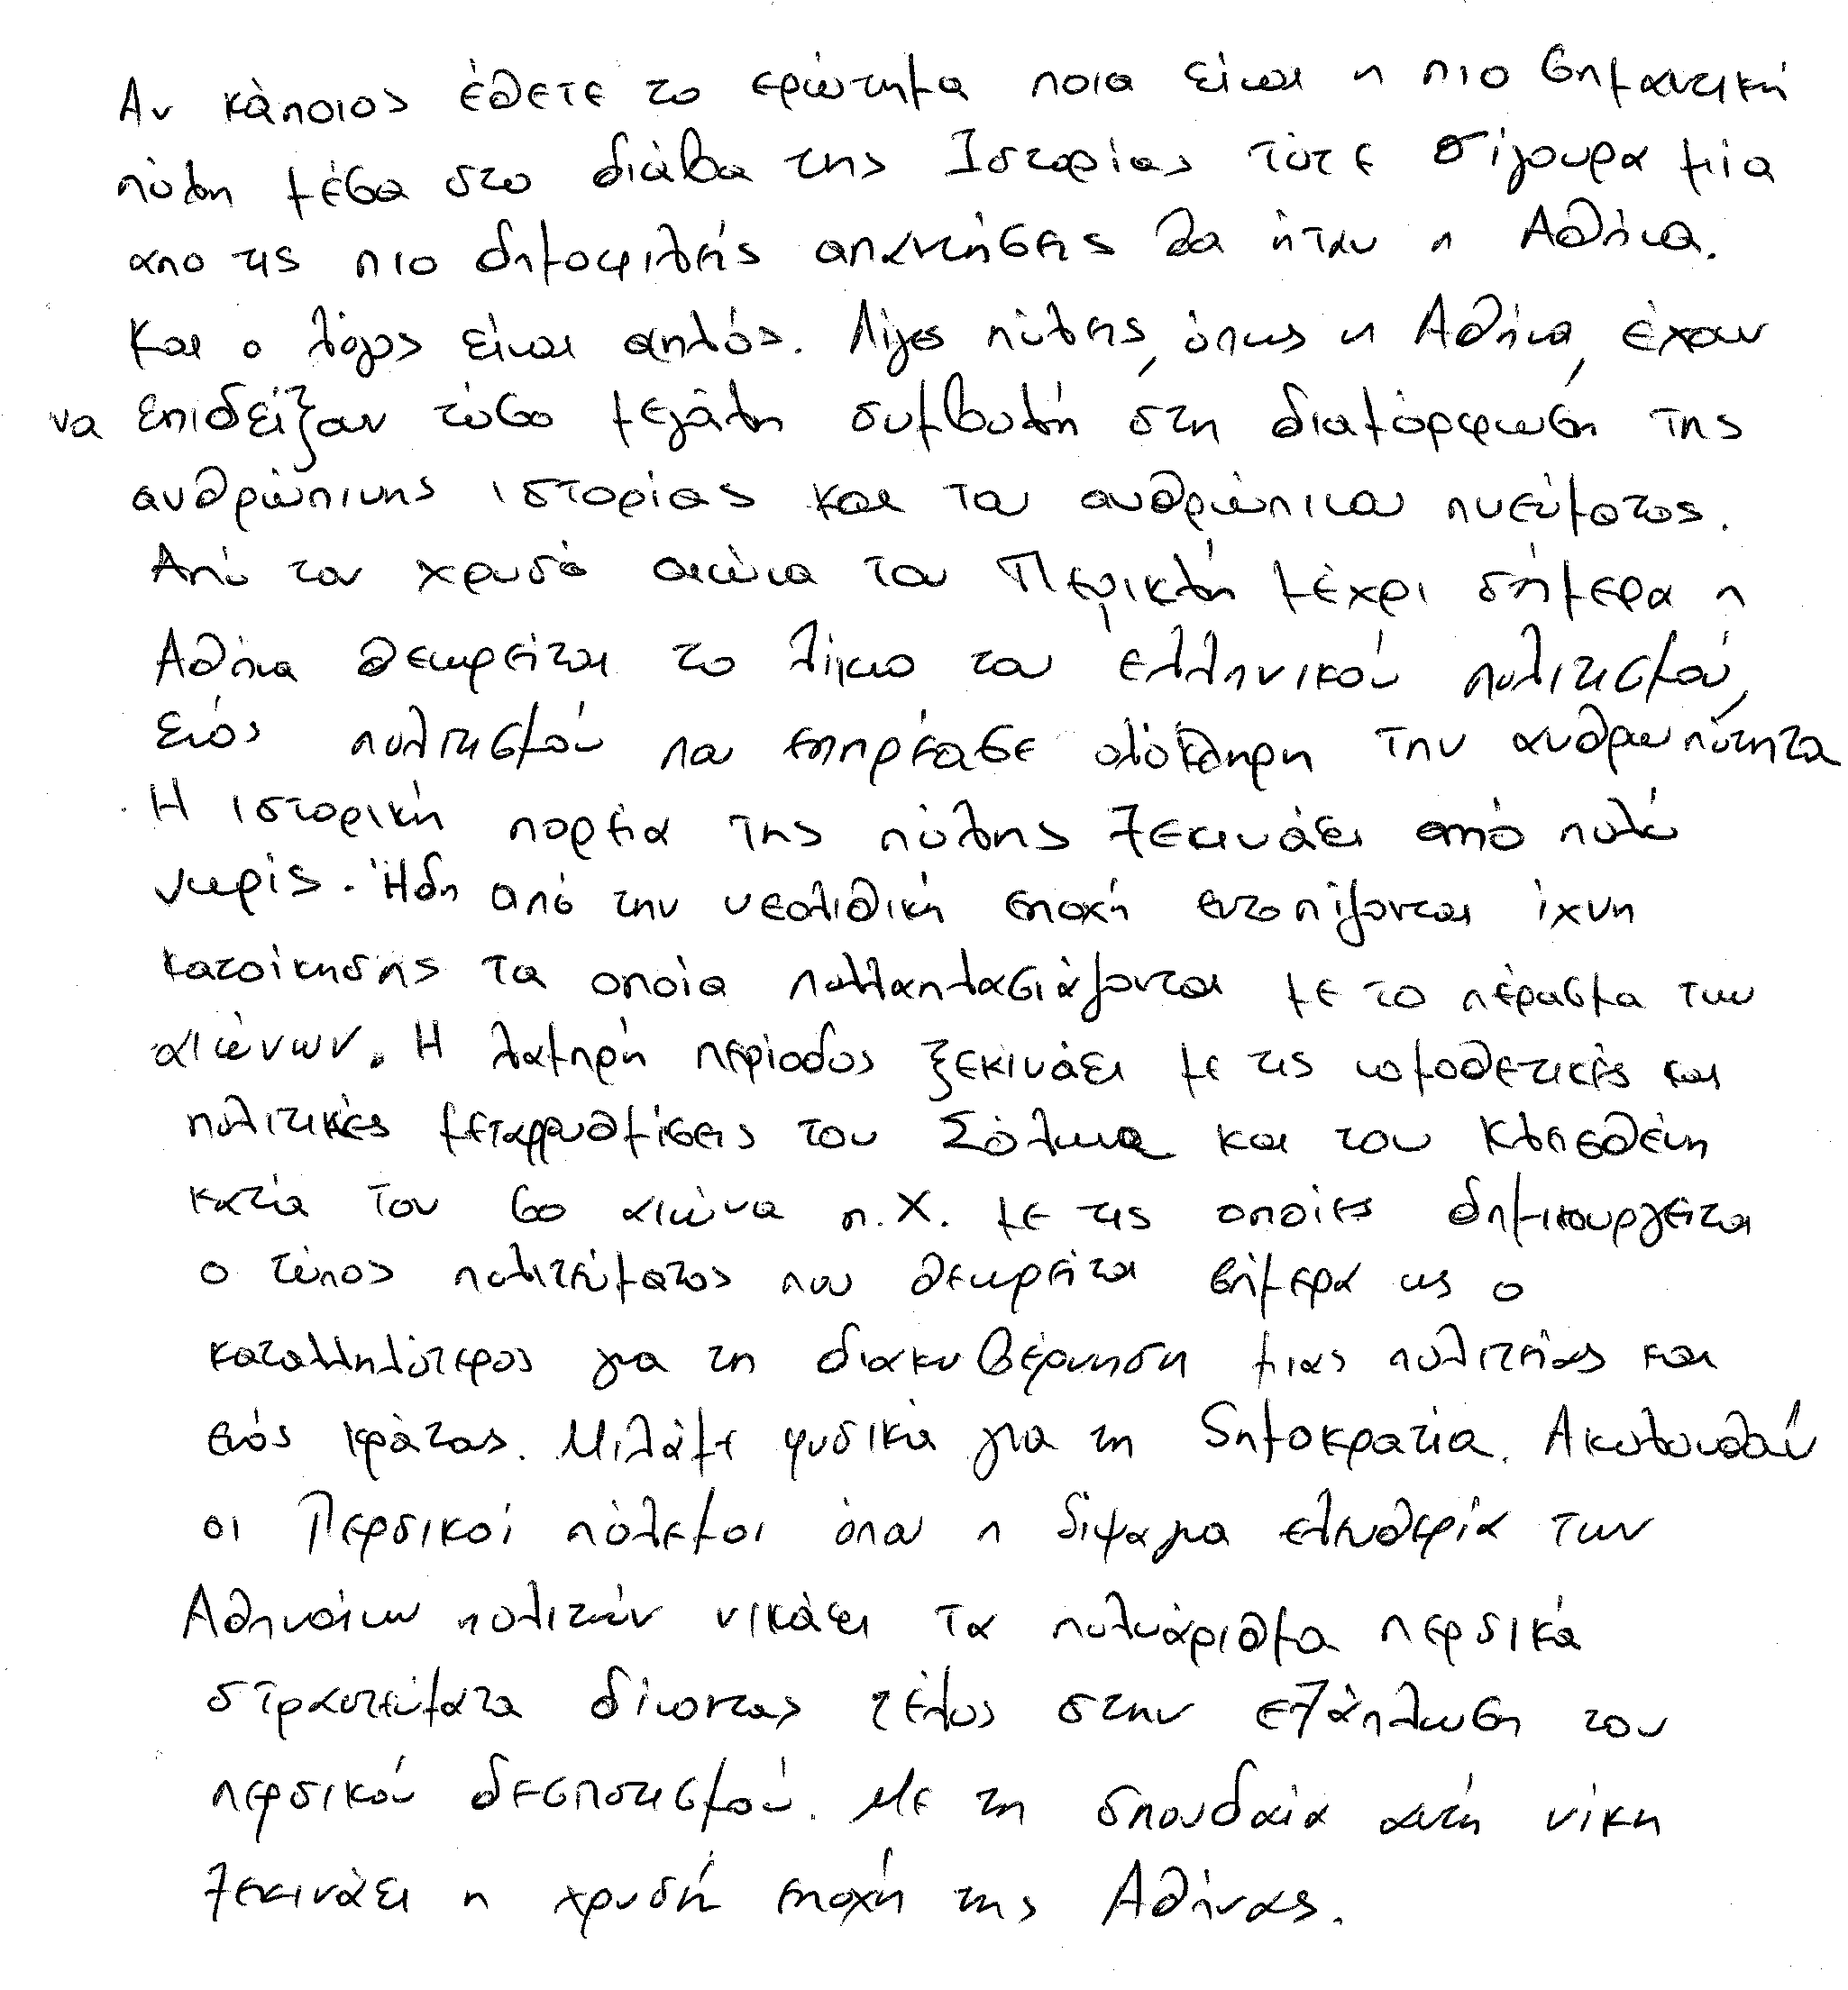 Αν κάποιος έθετε το ερώτημα ποια είναι η πιο σημαντική
πόλη μέσα στο διάβα της Ιστορίας τότε σίγουρα μία
απο τις πιο δημοφιλείς απαντήσεις θα ήταν η Αθήνα.
Και ο λόγος είναι απλός. Λίγες πόλεις, όπως η Αθήνα, έχουν
να επιδείξουν τόσο μεγάλη συμβολή στη διαμόρφωση της
ανθρώπινης ιστορίας και του ανθρώπινου πνεύματος.
Από τον χρυσό αιώνα του Περικλή μέχρι σήμερα η
Αθήνα θεωρείται το λίκνο του ελληνικού πολιτισμού,
ενός πολιτισμού που επηρέασε ολόκληρη την ανθρωπότητα
. Η ιστορική πορεία της πόλης ξεκινάει από πολύ
νωρίς. Ήδη από την νεολιθική εποχή εντοπίζονται ίχνη
κατοίκησης τα οποία πολλαπλασιάζονται με το πέρασμα των
αιώνων. Η λαμπρή περίοδος ξεκινάει με τις νομοθετικές και
πολιτικές μεταρρυθμίσεις του Σόλωνα και του Κλεισθένη
κατά τον 6ο αιώνα π.Χ. με τις οποίες δημιουργείται
ο τύπος πολιτεύματος που θεωρείται σήμερα ως ο
καταλληλότερος για τη διακυβέρνηση μιας πολιτείας και
ενός κράτους. Μιλάμε φυσικά για τη δημοκρατία. Ακολουθούν
οι Περσικοί πόλεμοι όπου η δίψα για ελευθερία των
Αθηναίων πολιτών νικάει τα πολυάριθμα περσικά
στρατεύματα δίνοντας τέλος στην εξάπλωση του
περσικού δεσποτισμού. Με τη σπουδαία αυτή νίκη
ξεκινάει η χρυσή εποχή της Αθήνας.